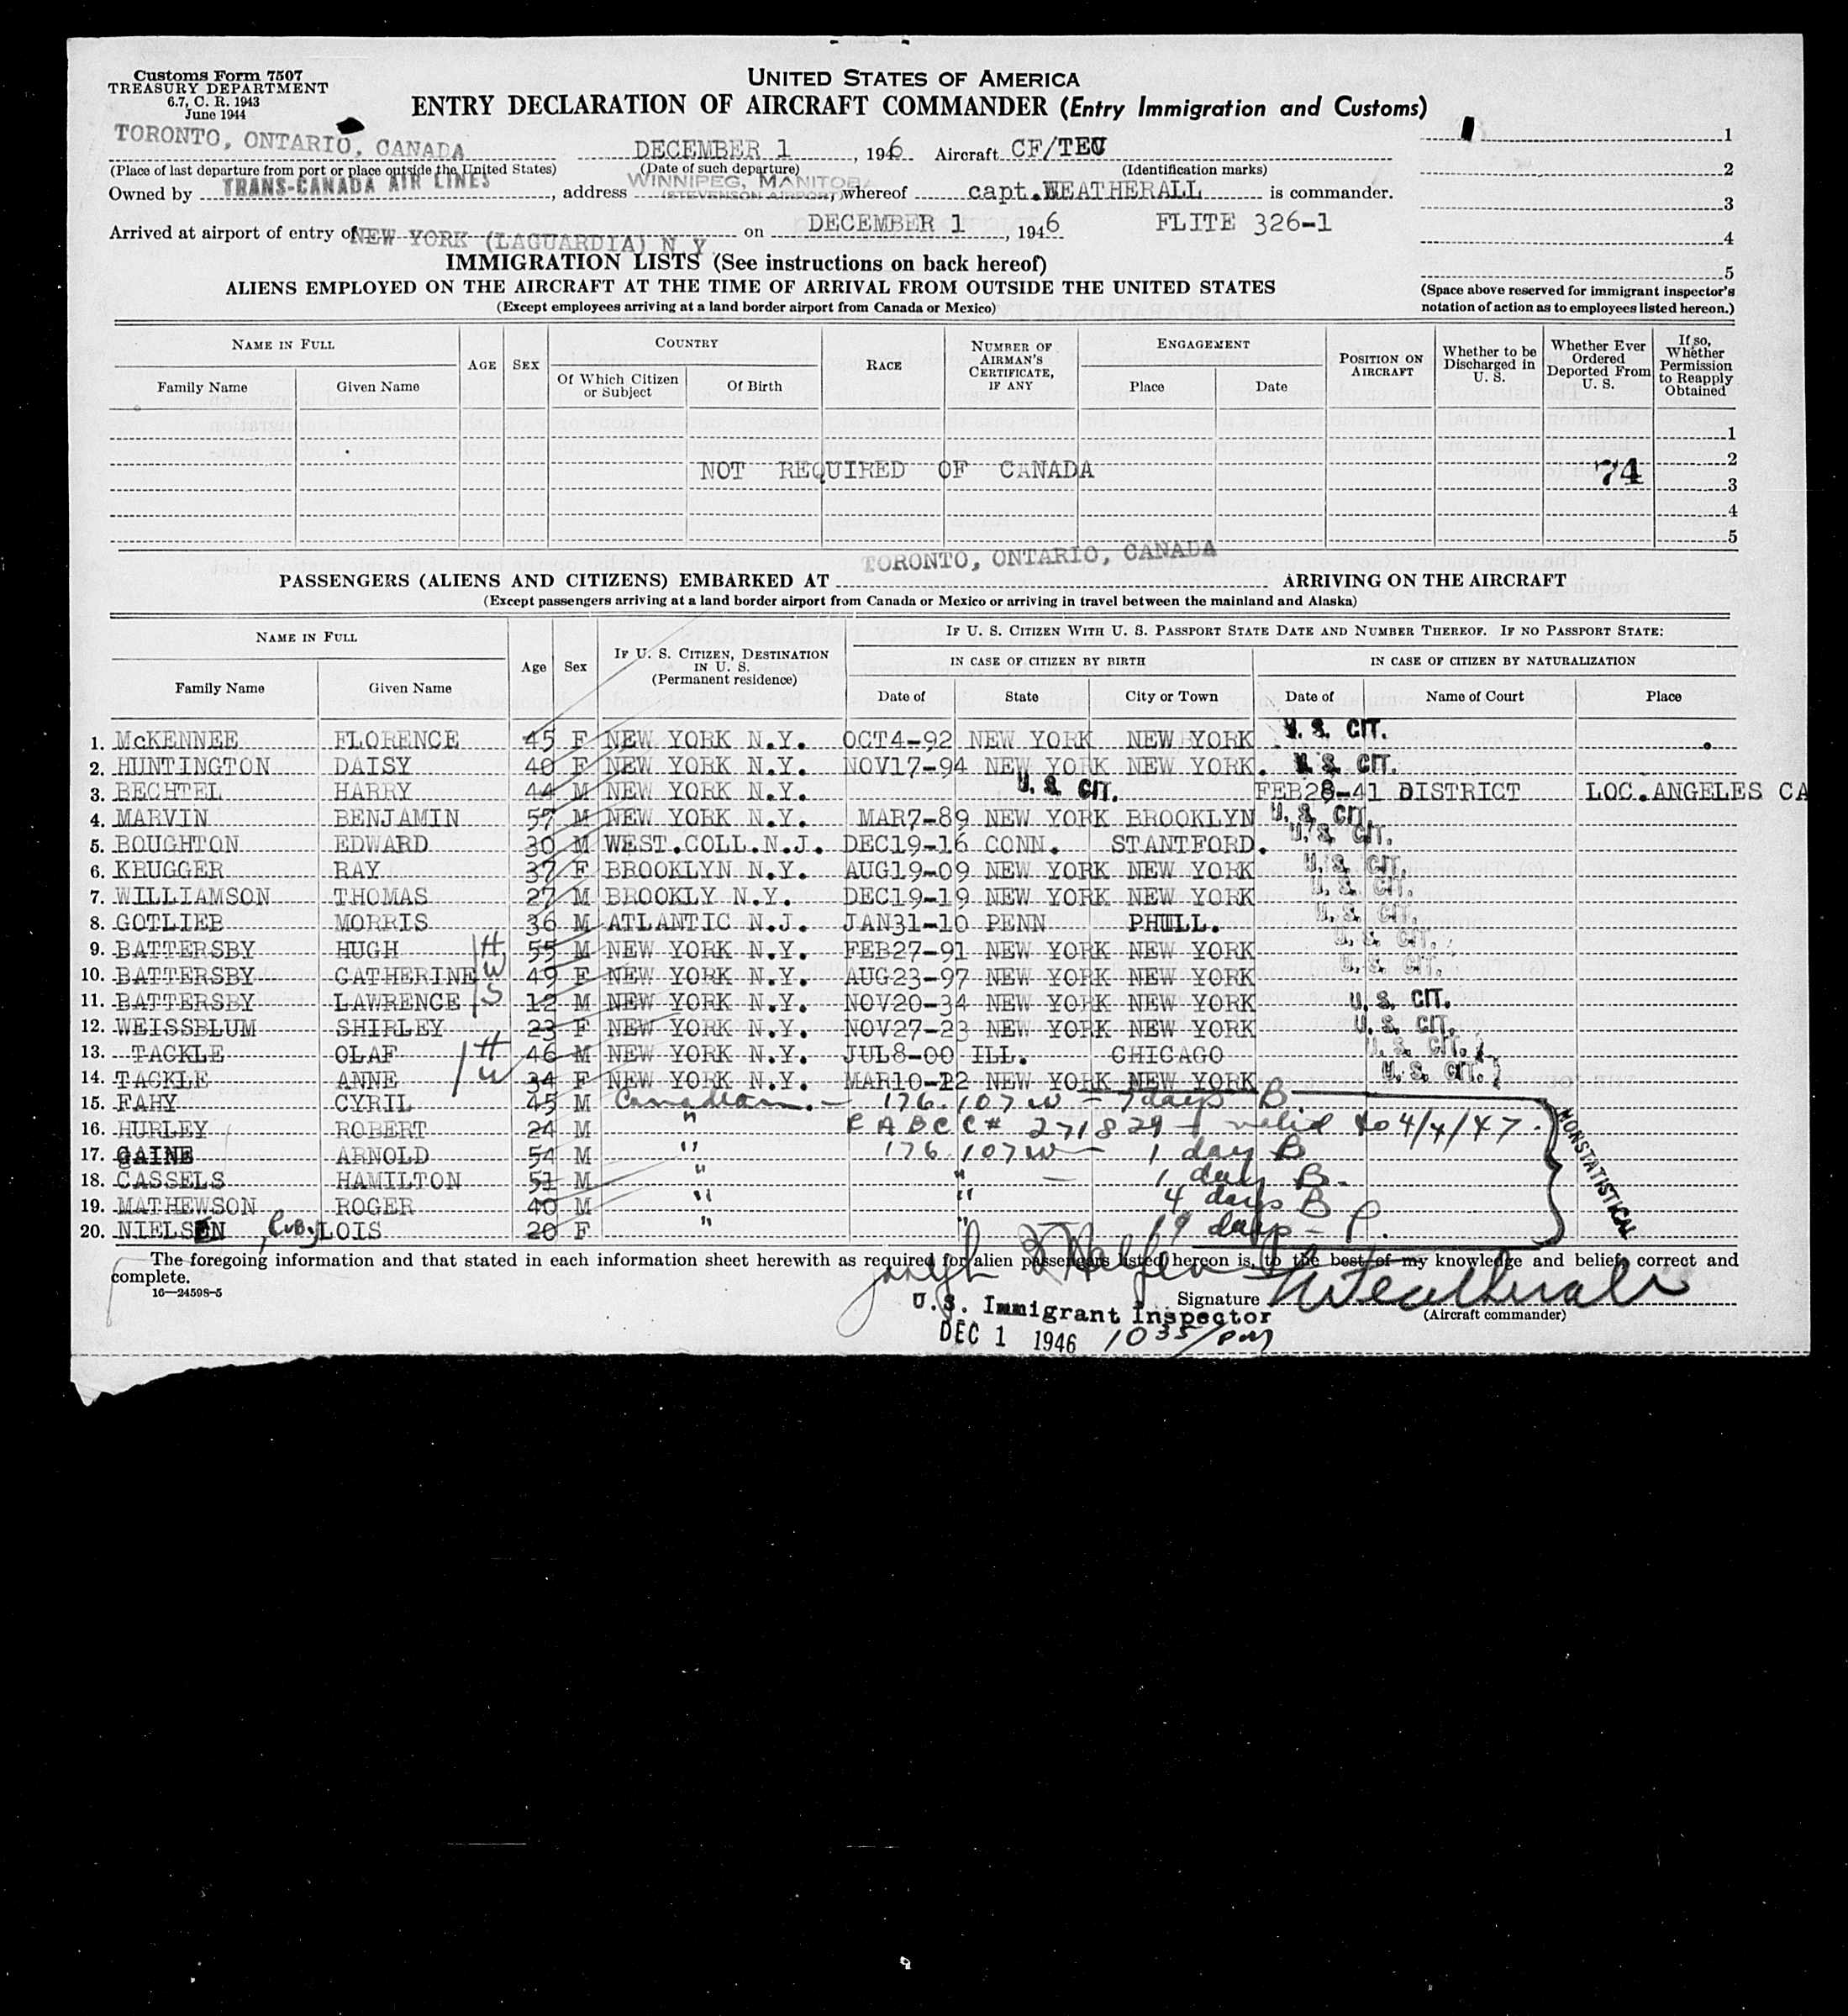 Customs Form 7507
TREASURY DEPARTMENT
6.7, C. R. 1943
June 1944
UNITED STATES OF AMERICA
ENTRY DECLARATION OF AIRCRAFT COMMANDER (Entry Immigration and Customs)
TORONTO, ONTARIO, CANADA DECEMBER 1, 1946 Aircraft CF/TEU 1
(Place of last departure from port or place outside the United States) (Date of such departure) (Identification marks) 2
Owned by TRANS-CANADA AIR LINES, address WINNIPEG, MANITOBA (STEVENSON AIRPORT), whereof capt.WEATHERALL is commander. 3
Arrived at airport of entry of NEW YORK (LAGUARDIA) N Y on DECEMBER 1, 1946 FLITE 326-1 4
IMMIGRATION LISTS (See instructions on back hereof) 5
ALIENS EMPLOYED ON THE AIRCRAFT AT THE TIME OF ARRIVAL FROM OUTSIDE THE UNITED STATES (Space above reserved for immigrant inspector's
(Except employees arriving at a land border airport from Canada or Mexico) notation of action as to employees listed hereon.)
NAME IN FULL AGE SEX COUNTRY RACE NUMBER OF AIRMAN'S CERTIFICATE, IF ANY ENGAGEMENT POSITION ON AIRCRAFT Whether to be Discharged in U. S. Whether Ever Ordered Deported From U. S. If so, Whether Permission to Reapply Obtained
Family Name Given Name Of Which Citizen or Subject Of Birth Place Date
1
2
NOT REQUIRED OF CANADA 74
3
4
5
PASSENGERS (ALIENS AND CITIZENS) EMBARKED AT TORONTO, ONTARIO, CANADA ARRIVING ON THE AIRCRAFT
(Except passengers arriving at a land border airport from Canada or Mexico or arriving in travel between the mainland and Alaska)
NAME IN FULL Age Sex IF U. S. CITIZEN, DESTINATION IN U. S. (Permanent residence) IF U. S. CITIZEN WITH U. S. PASSPORT STATE DATE AND NUMBER THEREOF. IF NO PASSPORT STATE:
IN CASE OF CITIZEN BY BIRTH IN CASE OF CITIZEN BY NATURALIZATION
Family Name Given Name Date of State City or Town Date of Name of Court Place
1. McKENNEE FLORENCE 45 F NEW YORK N.Y. OCT4-92 NEW YORK NEW YORK U. S. CIT.
2. HUNTINGTON DAISY 40 F NEW YORK N.Y. NOV17-94 NEW YORK NEW YORK. U. S. CIT.
3. BECHTEL HARRY 44 M NEW YORK N.Y. U. S. CIT. FEB28-41 DISTRICT LOC.ANGELES CA
4. MARVIN BENJAMIN 57 M NEW YORK N.Y. MAR7-89 NEW YORK BROOKLYN U. S. CIT.
5. BOUGHTON EDWARD 30 M WEST.COLL.N.J. DEC19-16 CONN. STANTFORD. U. S. CIT.
6. KRUGGER RAY 37 F BROOKLYN N.Y. AUG19-09 NEW YORK NEW YORK U. S. CIT.
7. WILLIAMSON THOMAS 27 M BROOKLY N.Y. DEC19-19 NEW YORK NEW YORK U. S. CIT.
8. GOTLIEB MORRIS 36 M ATLANTIC N.J. JAN31-10 PENN PHILL. U. S. CIT.
9. BATTERSBY HUGH H 55 M NEW YORK N.Y. FEB27-91 NEW YORK NEW YORK U. S. CIT.
10. BATTERSBY CATHERINE W 49 F NEW YORK N.Y. AUG23-97 NEW YORK NEW YORK U. S. CIT.
11. BATTERSBY LAWRENCE S 12 M NEW YORK N.Y. NOV20-34 NEW YORK NEW YORK U. S. CIT.
12. WEISSBLUM SHIRLEY 23 F NEW YORK N.Y. NOV27-23 NEW YORK NEW YORK U. S. CIT.
13. TACKLE OLAF H 46 M NEW YORK N.Y. JUL8-00 ILL. CHICAGO U. S. CIT.
14. TACKLE ANNE W 34 F NEW YORK N.Y. MAR10-12 NEW YORK NEW YORK U. S. CIT.
15. FAHY CYRIL 45 M Canadian. - 176.107 W - 7 days B
16. HURLEY ROBERT 24 M " RABCC# 271829 - valid to 4/4/47.
17. GAINE ARNOLD 54 M " 176.107 W - 1 day B
18. CASSELS HAMILTON 51 M " " - 1 day B-
19. MATHEWSON ROGER 40 M " " 4 days B
20. NIELSEN, LOIS 20 F " " 19 days - P.
NONSTATISTICAL
The foregoing information and that stated in each information sheet herewith as required for alien passengers listed hereon is, to the best of my knowledge and belief, correct and
complete.
16—24598-5
Signature Weatherall
U.S. Immigrant Inspector (Aircraft commander)
DEC 1 1946 1035/pm